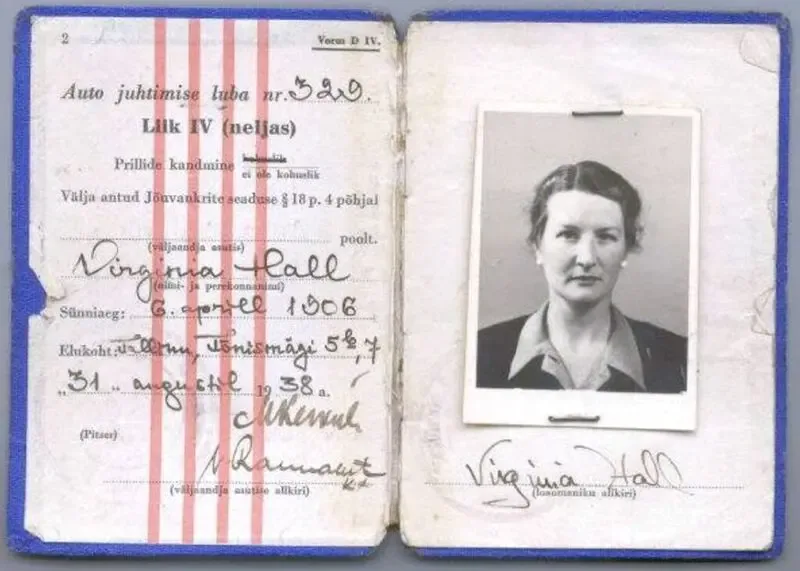 2
Vorm D IV.
Auto juhtimise luba nr. 329.
Liik IV (neljas)
Prillide kandmine kohuslik
ei ole kohuslik
Välja antud Jõuvankrite seaduse § 18 p. 4 põhjal
poolt.
(väljaandja asutis)
Virginia Hall
(nimi- ja perekonnanimi)
Sünniaeg: 6. aprill 1906
Elukoht: Tallinn, Tõnismägi 5b, 7
"31" augustil 1938 a.
(Pitser)
(väljaandja asutise alikiri)
Virginia Hall
(loaomaniku alikiri)